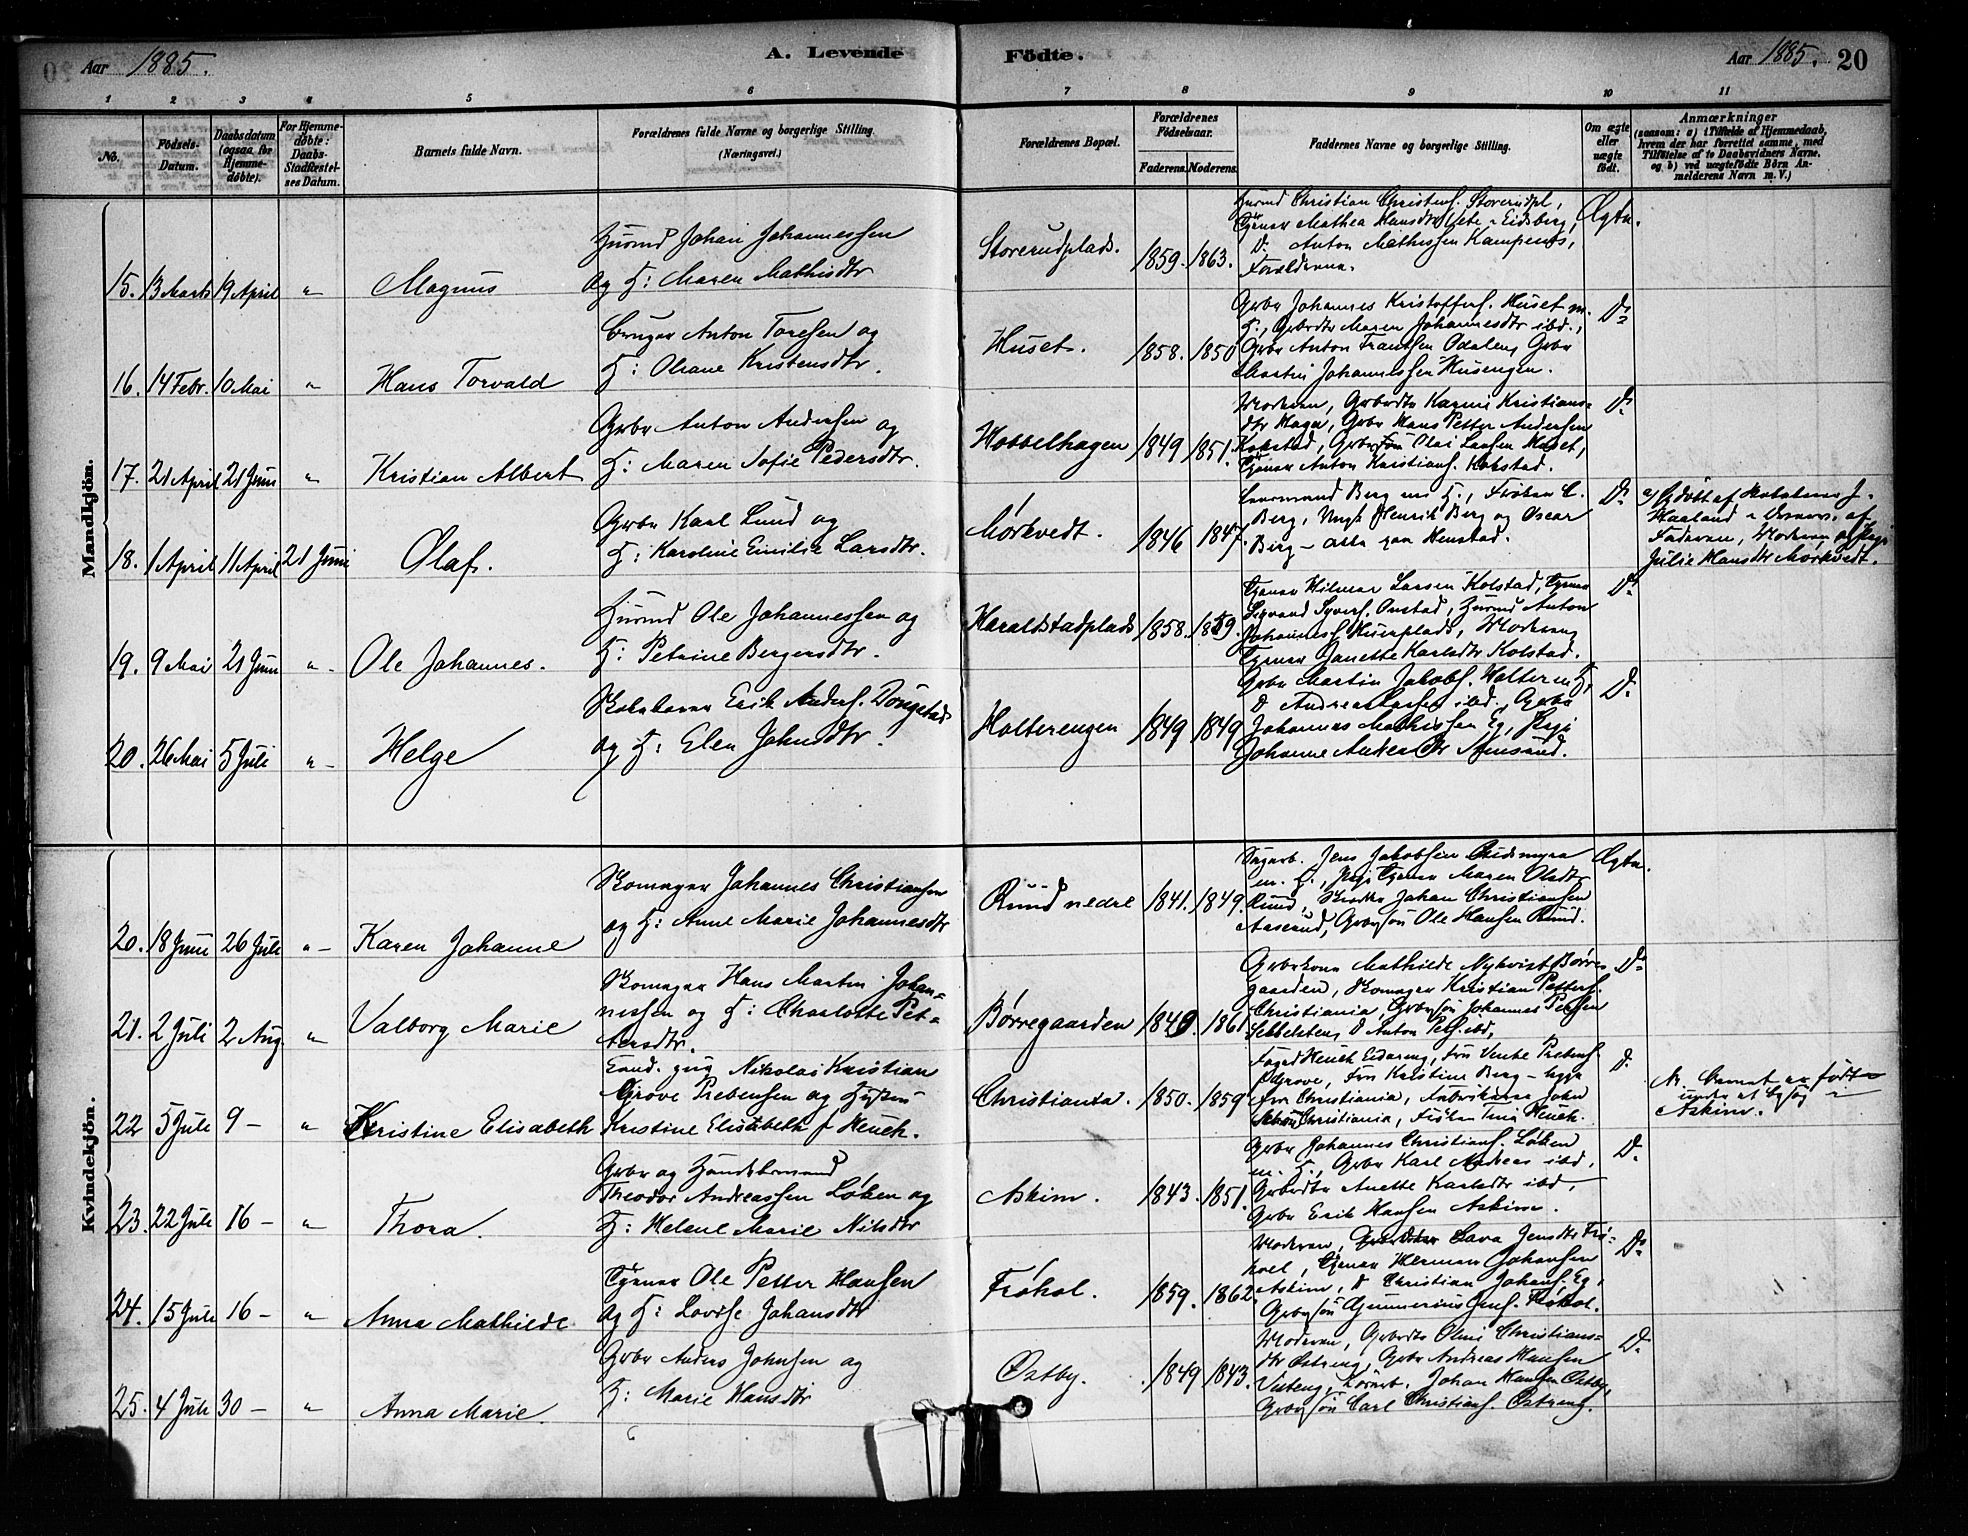 Aar 1885.
A. Levende
Födte.
Aar 1885.
20
1 2 3 4 5 6 7 8 9 10 11
No.
Födsels-Datum.
Daabsdatum (ogsaa for Hjemmedøbte).
For Hjemmedøbte: Daabs-Stadfæstelses Datum.
Barnets fulde Navn.
Forældrenes fulde Navne og borgerlige Stilling. (Næringsvei.)
Forældrenes Bopæl.
Forældrenes Födselsaar.
Faderens. Moderens.
Faddernes Navne og borgerlige Stilling.
Om ægte eller uægte födt.
Anmærkninger
(saasom: a) i Tilfælde af Hjemmedaab, hvem der har forrettet samme, med Tilföielse af to Daabsvidners Navne, og b) ved uægtefödte Börn Anmelderens Navn m. V.)
Mandkjön.
15. 13 Marts 19 April " Magnus
Husmd Johan Johannessen
og H: Maren Mathisdtr
Storerudplads. 1859. 1863.
Husmd Christian Christens. Storerudpl.,
Tjener Mathea Hansdtr Eidsberg,
D. Anton Mathissen Kampenes,
Forældrene.
Ægte.
16. 14 Febr. 10 Mai " Hans Torvald
Bruger Anton Toresen og
H: Oliane Kristensdtr.
Huset. 1858. 1850
Grbr Johannes Kristoffers. Huset m.
H., Grbrdtr Maren Johannesdtr ibd.,
Grbr Anton Frantsen Odaleng Grbr
Martin Johannessen Husengen.
Do
17. 21 April 21 Juni " Kristian Albert
Grbr Anton Andersen og
H: Maren Sofie Pedersdtr.
Hobbelhagen 1849 1851.
Moderen, Grbrdtr Karen Kristians-
dtr Hagen, Grbr Hans Petter Andersen
Kolstad, Grbrsøn Olai Larsen Huset,
Tjener Anton Kristians. Kolstad.
Do
18. 1 April 11 April 21 Juni Olaf.
Grbr Karl Lund og
H: Karoline Emilie Larsdtr.
Mørkvedt. 1846 1847.
Lensmand Berg m H., Frøken C.
Berg, Ungk Henrik Berg og Oscar
Berg – alle paa Henstad.
Do
a) Hjdøbt af Skolelærer J.
Haaland i Overvær. af
Faderen, Moderen og Pige
Julie Hansdtr Mørkvedt.
19. 9 Mai 21 Juni " Ole Johannes.
Husmd Ole Johannessen og
H: Petrine Bergersdtr.
Haraldstadplads 1858. 1859.
Tjener Hilmar Larsen Kolstad, Tjener
Sigvard Syvers. Onstad, Husmd Anton
Johanness. Huerplads, Moderen
Tjener Janette Karlsdtr Kolstad.
Do
20. 26 Mai 5 Juli " Helge
Skolelærer Erik Anders. Dongstad
og H: Elen Johnsdtr.
Holterengen 1849 1849
Grbr Martin Jakobs. Holter m H,
D Andreas Larsen ibd., Grbr
Johannes Mathissen Eg, Pige
Johanne Andersdtr Aamsrud.
Do
Kvindekjön.
20. 18 Juni 26 Juli " Karen Johanne
Skomager Johannes Christiansen
og H: Anne Marie Johannesdtr
Rund nedre 1841. 1849.
Sagarb. Jens Jakobsen Rudsmyra
m. H., Pige Tjener Maren Olsdtr
Rund, Skrædder Johan Christiansen
Aaserud, Grbrsøn Ole Hansen Rund.
Ægte.
21. 2 Juli 2 Aug. " Valborg Marie
Skomager Hans Martin Johan-
nessen og H: Charlotte Pet-
tersdtr.
Børregaarden 1849. 1861
Grbrkone Mathilde Nykvist Børre-
gaarden, Skomager Kristian Petters.
Christiania, Grbrsøn Johannes Petersen
Sekkelsten, D Anton Peters. ibd,
Do
22 5 Juli 9 – " Kristine Elisabeth
Cand. jur Nikolai Kristian
Grove Prebensen og Hustru
Kristine Elisabeth f Heuch.
Christiania. 1850. 1859
Foged Heuch Eidareng, Fru Vente Prebens.
Grove, Fru Kristine Berg – begge
fra Christiania, Fabrikeier John
Schou Christiania, Frøken Tina Heuch.
D.
Nr. Barnet er født
under et Besøg i
Askim.
23. 22 Juli 16 – " Thora.
Grbr og Handelsmand
Theodor Andreassen Løken og
H: Helene Marie Nilsdtr
Askim. 1843. 1851.
Grbr Johannes Christians. Løken
m. H., Grbr Karl Andreas ibd.
Grbrdtr Anette Karlsdtr ibd,
Grbr Erik Hansen Askim.
D.
24. 15 Juli 16 – " Anna Mathilde
Tjener Ole Petter Hansen
og H: Lovise Johansdtr
Frøhol. 1859. 1862
Moderen, Lava Jensdtr Frø-
hol, Tjener Herman Johansen
Askim, D Christian Johans. Eg,
Grbrsøn Gunnerius Jens. Frøhol.
Do
25. 4 Juli 30 – " Anna Marie.
Grbr Anders Johnsen og
H: Marie Hansdtr
Østby. 1849 1843.
Moderen, Grbrdtr Olini Christians-
dtr Østreng, Grbr Andreas Hansen
Vesteng, Johan Hansen Østby,
Grbrsøn Carl Christians. Østreng.
D.